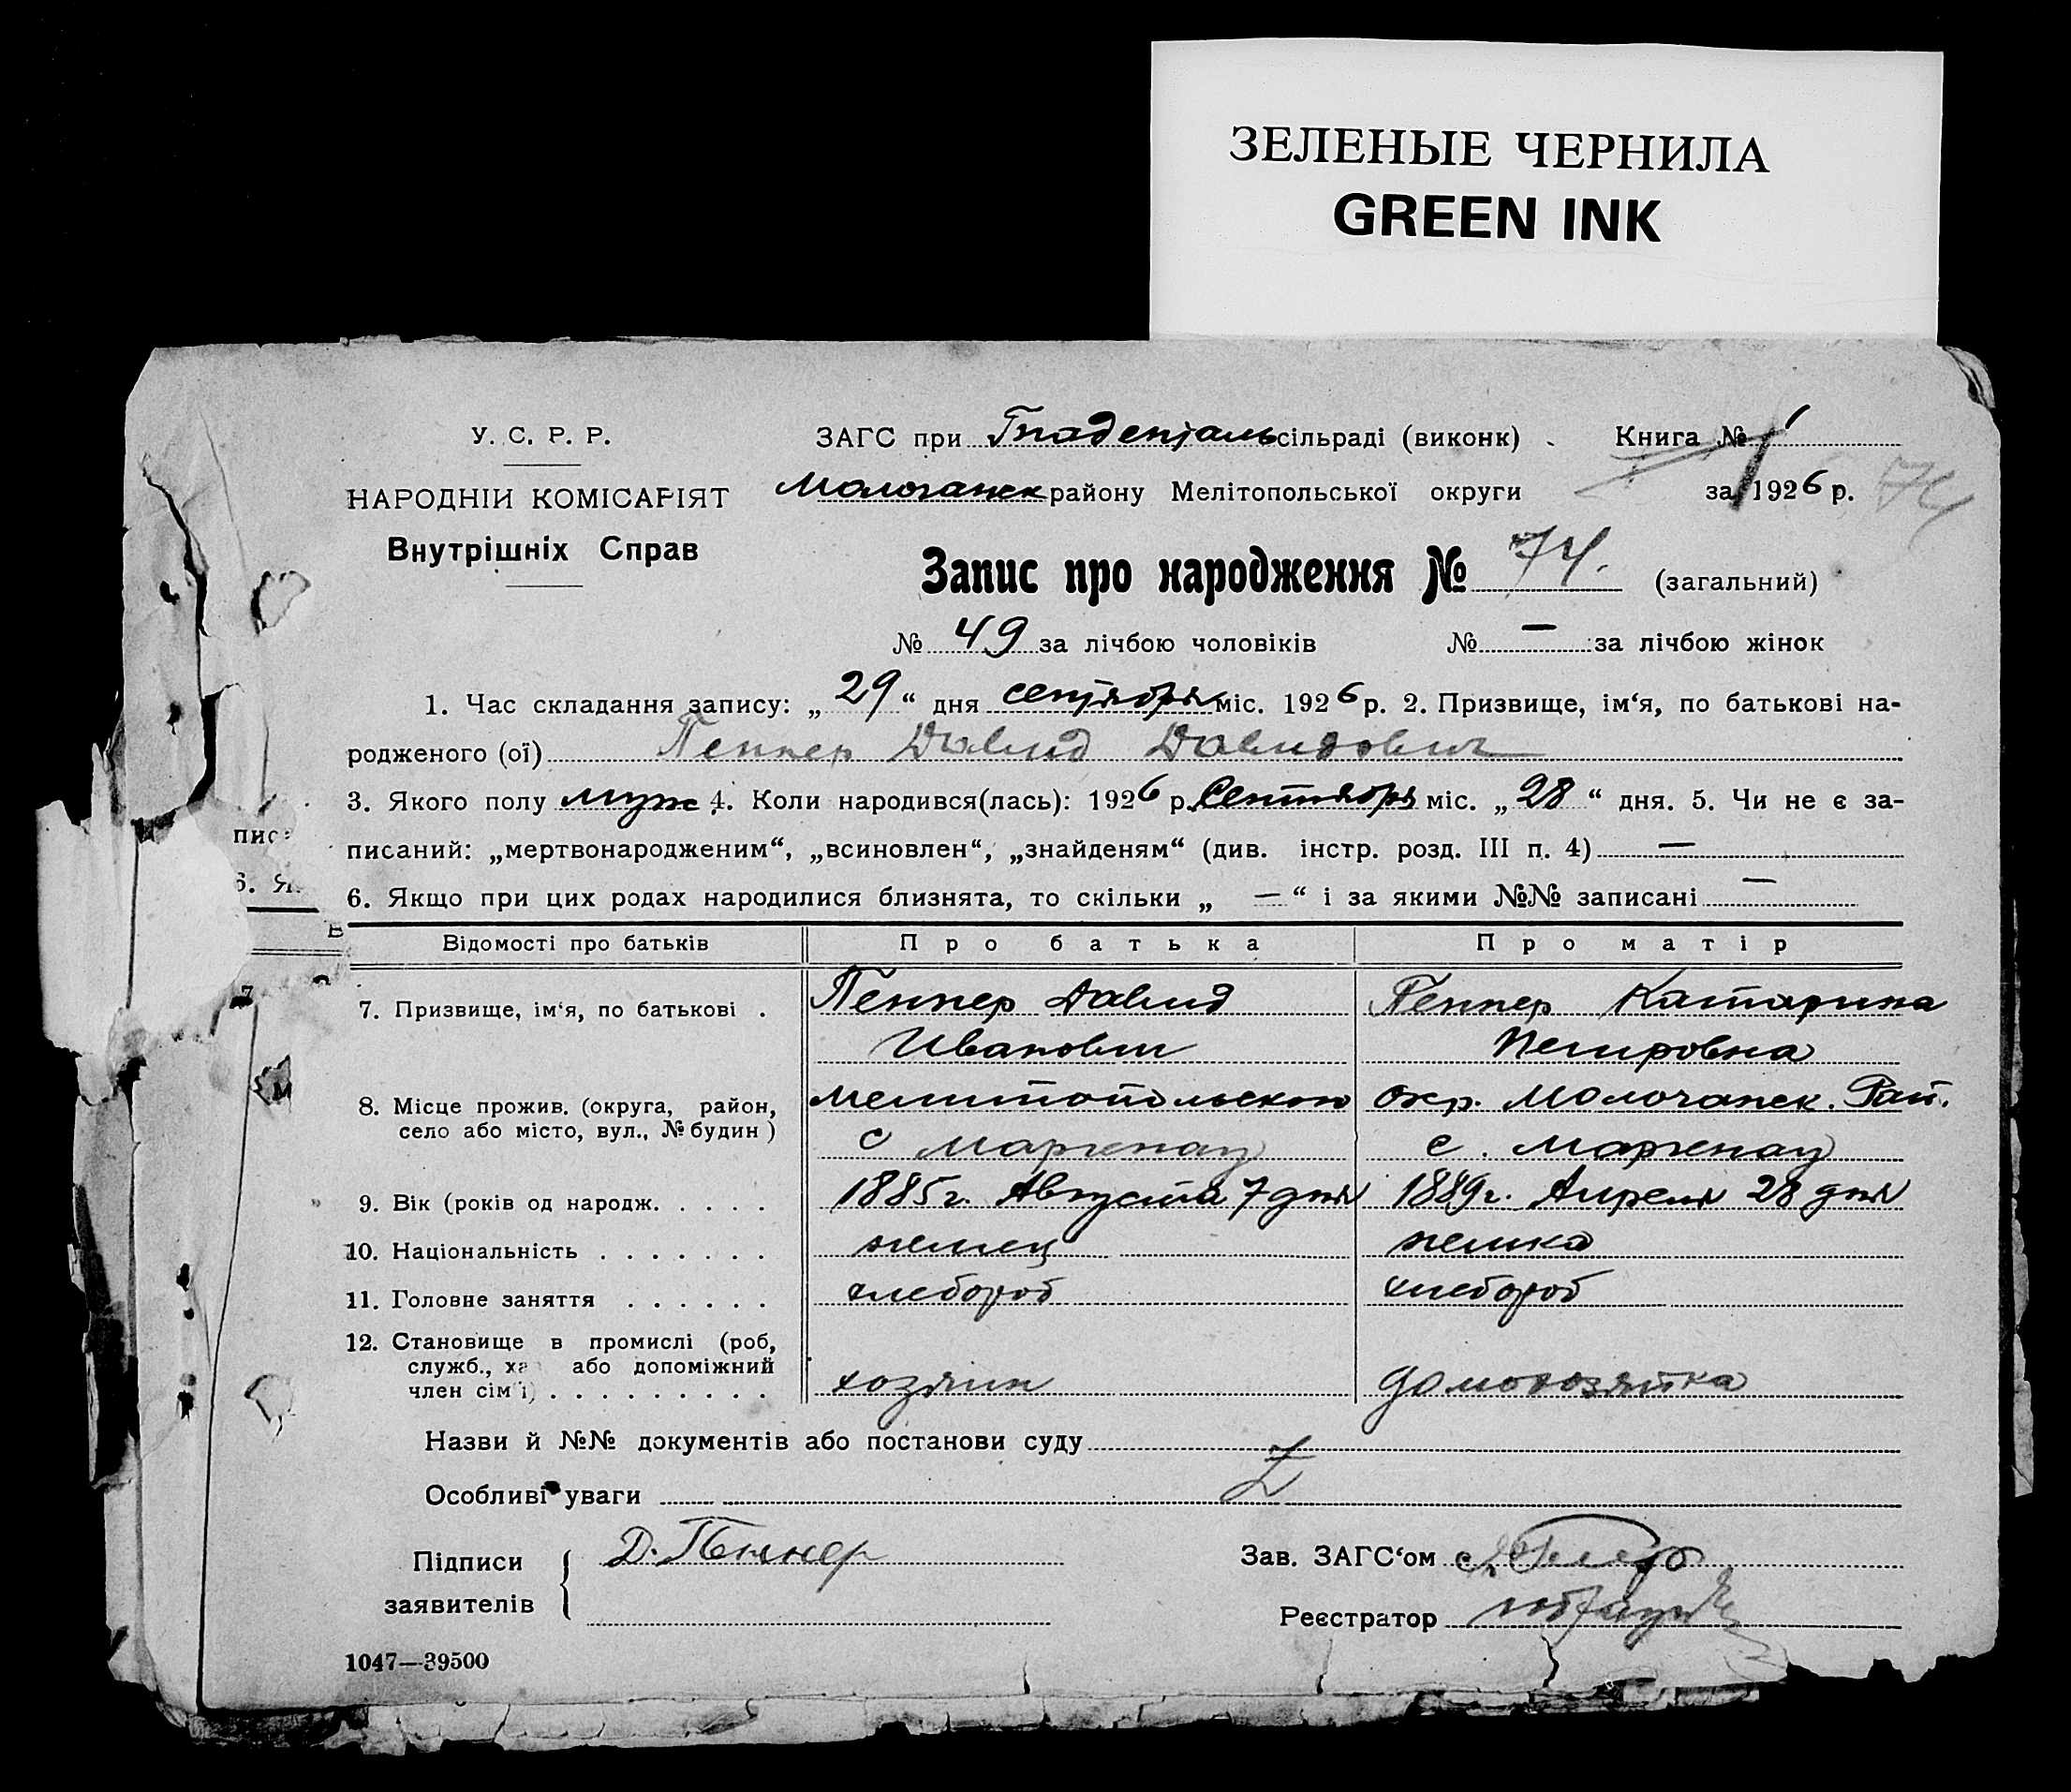 ЗЕЛЕНЫЕ ЧЕРНИЛА
GREEN INK
У. С. Р. Р.
НАРОДНІИ КОМІСАРІЯТ
Внутрішніх Справ
ЗАГС при Гнаденталь сільраді (виконк) Книга № 1
Молочанск району Мелітопольської округи за 1926 р. 74
Запис про народження № 74. (загальний)
№ 49 за лічбою чоловіків № — за лічбою жінок
1. Час складання запису: „29“ дня сентября міс. 1926 р. 2. Призвище, ім‘я, по батькові на-
родженого (ої) Пеннер Давид Давидович
3. Якого полу муж 4. Коли народився(лась): 1926 р. Сентября міс. „28“ дня. 5. Чи не є за-
писаний: „мертвонародженим“, „всиновлен“, „знайденям“ (див. інстр. розд. III п. 4) —
6. Якщо при цих родах народилися близнята, то скільки „ — “ і за якими №№ записані —
Відомості про батьків Про батька Про матір
7. Призвище, ім‘я, по батькові . Пеннер Давид Пеннер Катарина
Иванович Петровна
8. Місце прожив. (округа, район, село або місто, вул., № будин) Мелитопольского окр. Молочанск. Рай.
с Маргенау с. Маргенау
9. Вік (років од народж. . . . . 1885г. Августа 7 дня 1889г. Апреля 28 дня
10. Національність . . . . . . . немец немка
11. Головне заняття . . . . . . хлебороб хлебороб
12. Становище в промислі (роб,
служб., ха або допоміжний
член сім‘ї) . . . . . . . . . хозяин домохозяйка
Назви й №№ документів або постанови суду
Особливі уваги Z
Підписи заявителів Д. Пеннер
Зав. ЗАГС‘ом
Реєстратор
1047—39500